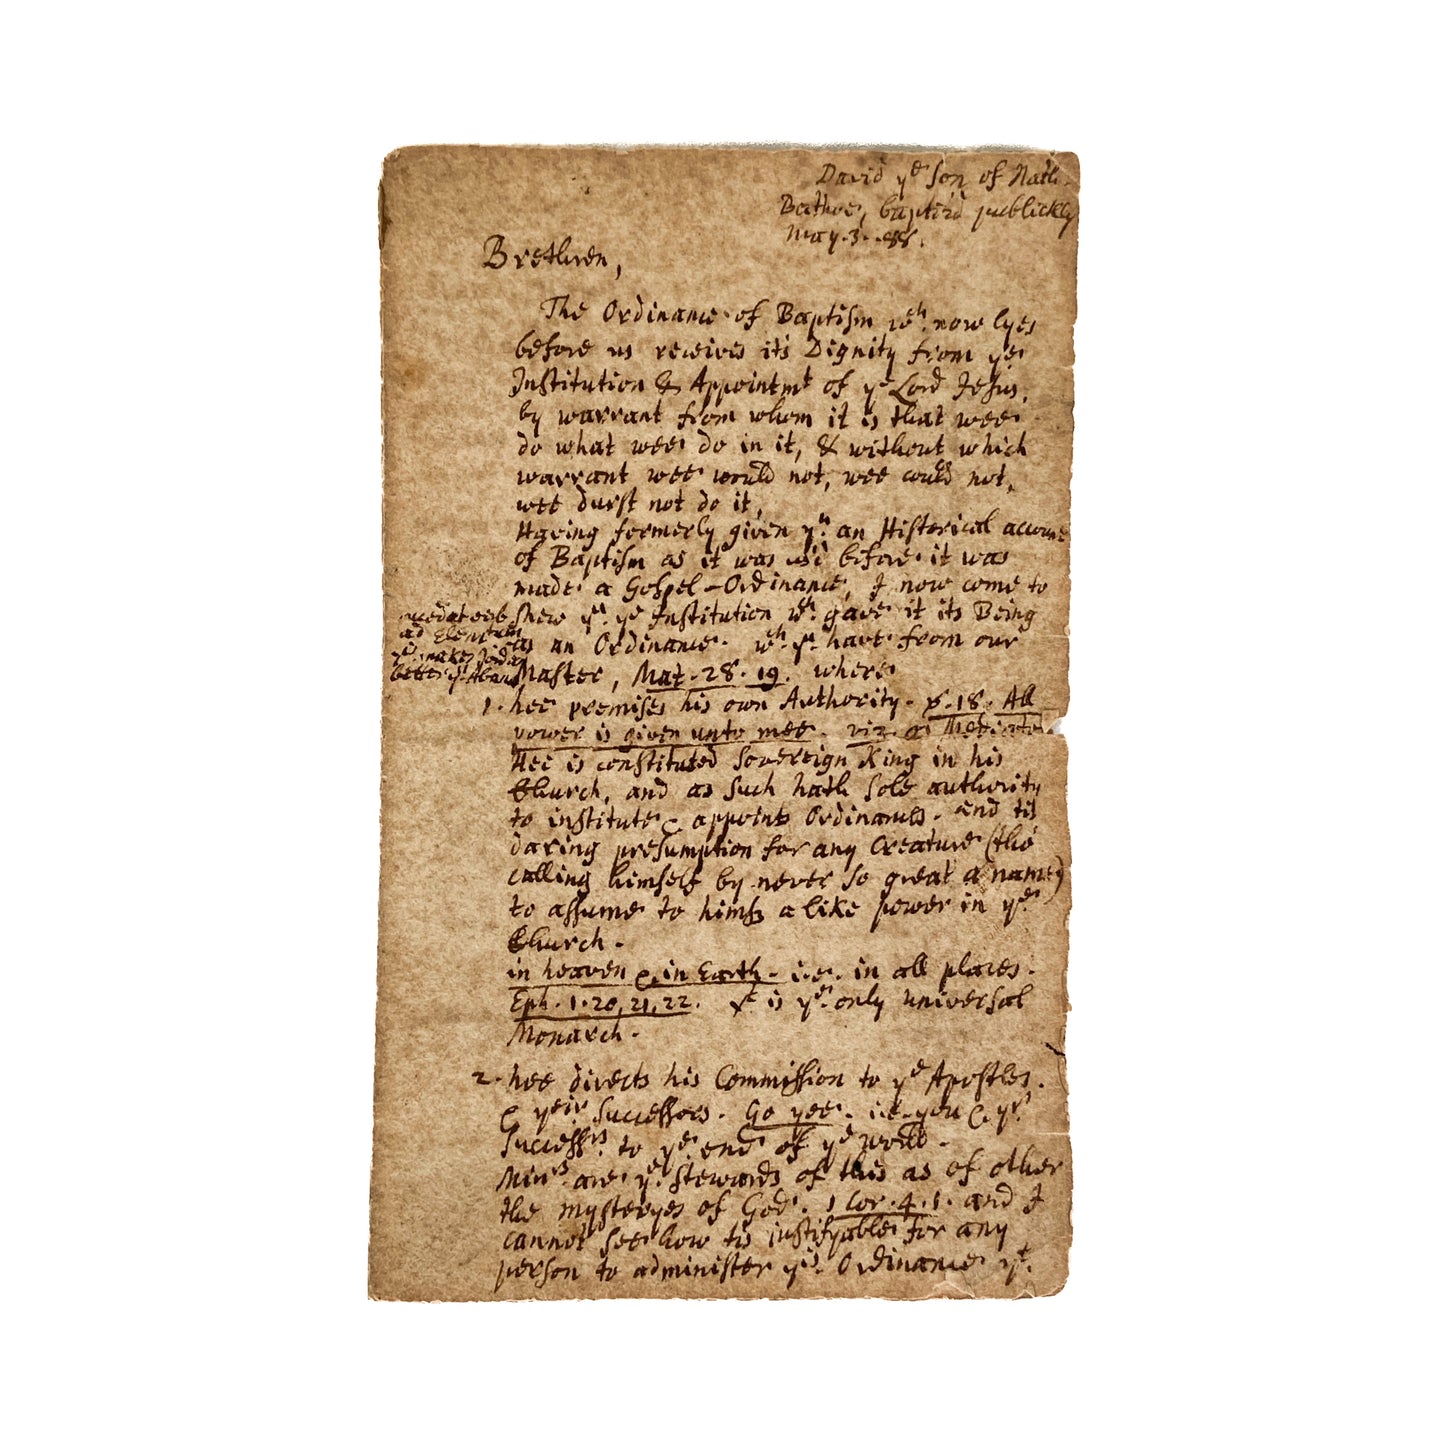 David yᵉ Son of Nath.
Bathoe, baptiz'd publickly
May. 3. 88.
Brethren,
The Ordinance of Baptism wᶜʰ now lyes
before us receives its Dignity from yᵉ
Institution & Appointmᵗ of yᵉ Lord Jesus,
by warrant from whom it is that wee
do what wee do in it, & without which
warrant wee would not, wee could not,
wee durst not do it,
Having formerly given yᵘ an Historical account
of Baptism as it was us'd before it was
made a Gospel-Ordinance, I now come to
shew yᵘ yᵉ Institution wᶜʰ gave it its Being
as an Ordinance. wᶜʰ yᵘ have from our
Master, Mat. 28. 19. where
accedat verb
ad Elementum
yⁱˢ makes Jordan
better yⁿ Abana
1. hee premises his own Authority. v. 18. All
power is given unto mee. viz. as Mediator.
Hee is constituted Sovereign King in his
Church, and as such hath sole authority
to institute & appoint Ordinances. and tis
daring presumption for any Creature (tho'
calling himself by never so great a name)
to assume to himß a like power in yᵉ
Church.
in heaven & in Earth. i.e. in all places.
Eph. 1. 20, 21, 22. Xᵗ is yᵉ only universal
Monarch.
2. hee directs his Commission to yᵉ Apostles.
& yeir Successors. Go yee. i.e. you & yʳ
Successʳˢ to yᵉ end of yᵉ world.
Minʳˢ are yᵉ Stewards of this as of other
the mysteryes of God. 1 Cor. 4. 1. and I
cannot see how tis justifyable for any
person to administer yⁱˢ Ordinance yᵗ